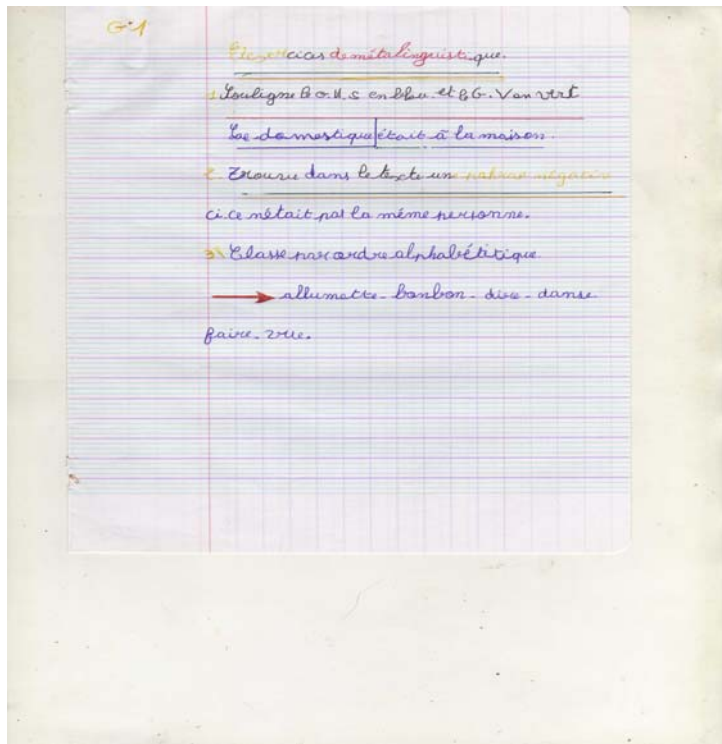 G1
Exercices de métalinguistique.
1. Souligne G.N.S en bleu et G.G.V en vert
Le domestique|était à la maison.
2. Trouve dans le texte une négative
ci ce nétait pas la même personne.
3) Classe par ordre alphabétitique
allumette - bonbon - dire - danse
faire - vue.